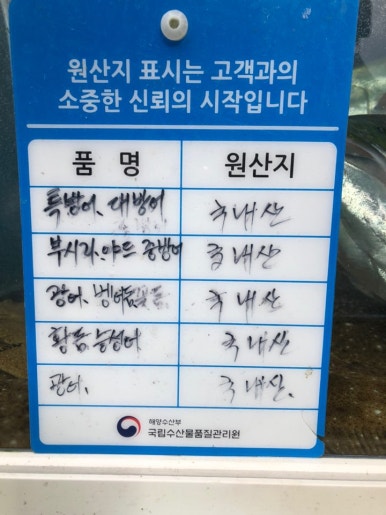 원산지 표시는 고객과의
소중한 신뢰의 시작입니다
품 명 원산지
특방어. 대방어 국내산
부시리. 야드 중방어 국내산
광어. 국내산
황돔 능성어 국내산
광어. 국내산.
해양수산부
국립수산물품질관리원